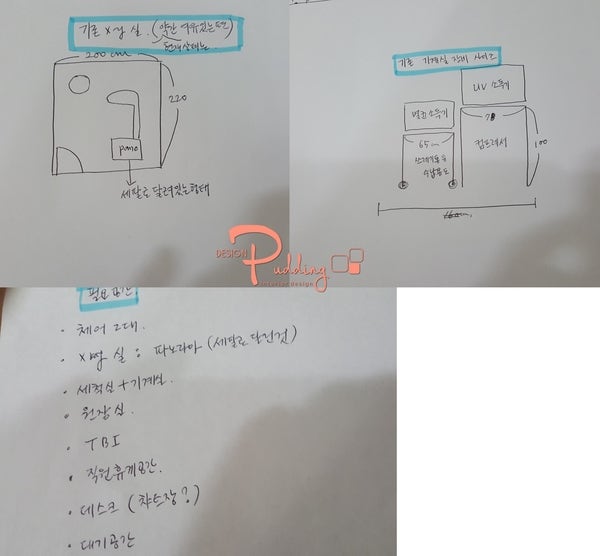 기존 X망 실. (약간 여유있는편)
현재상태는
200cm
220
pano
세팔로 달려있는형태
기존 기계실 장비 사이즈
UV 소독기
멸균소독기
75
65cm
컴프레셔
100
수납용도
DESIGN
Pudding
interior design
필요공간
· 체어 2대.
· X망 실 : 파노라마 (세팔로 달린것)
· 세척실 + 기계실.
· 원장실.
· TBI
· 직원휴게공간.
· 데스크 (챠트장?)
· 대기공간